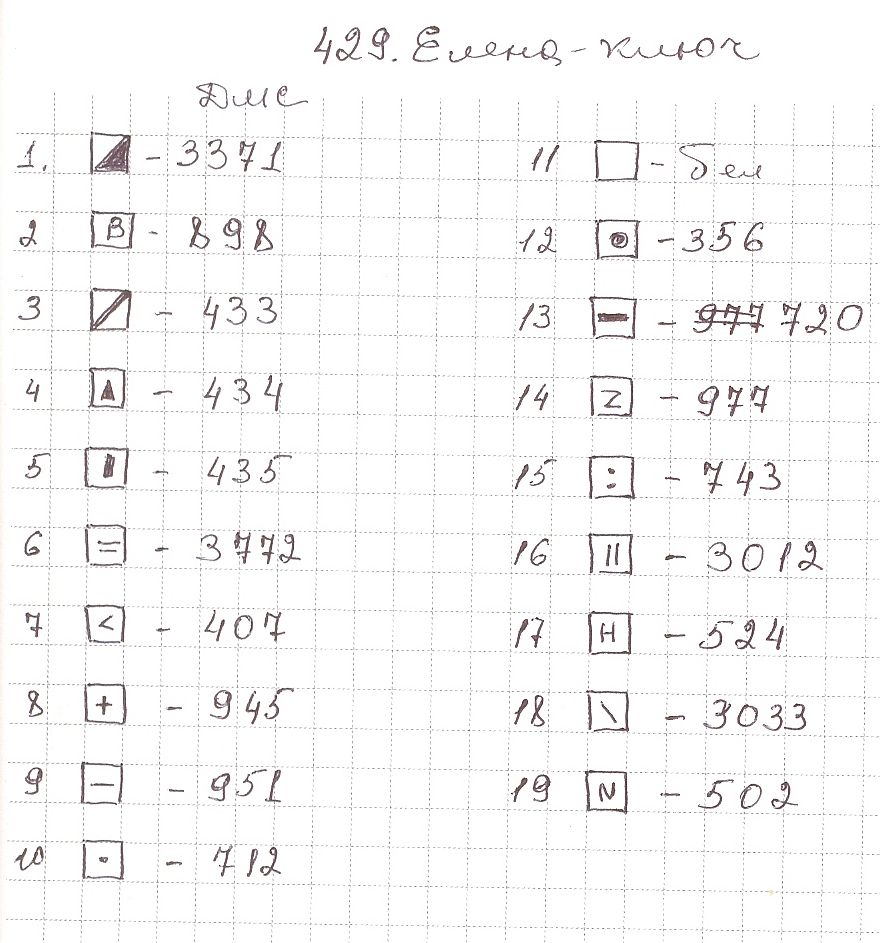 429. Елена - ключ
ДМС
1. - 3371
2 В - 898
3 - 433
4 - 434
5 - 435
6 = - 3772
7 < - 407
8 + - 945
9 — - 951
10 · - 712
11 - бел
12 - 356
13 - 977 720
14 Z - 977
15 : - 743
16 || - 3012
17 Н - 524
18 \ - 3033
19 N - 502